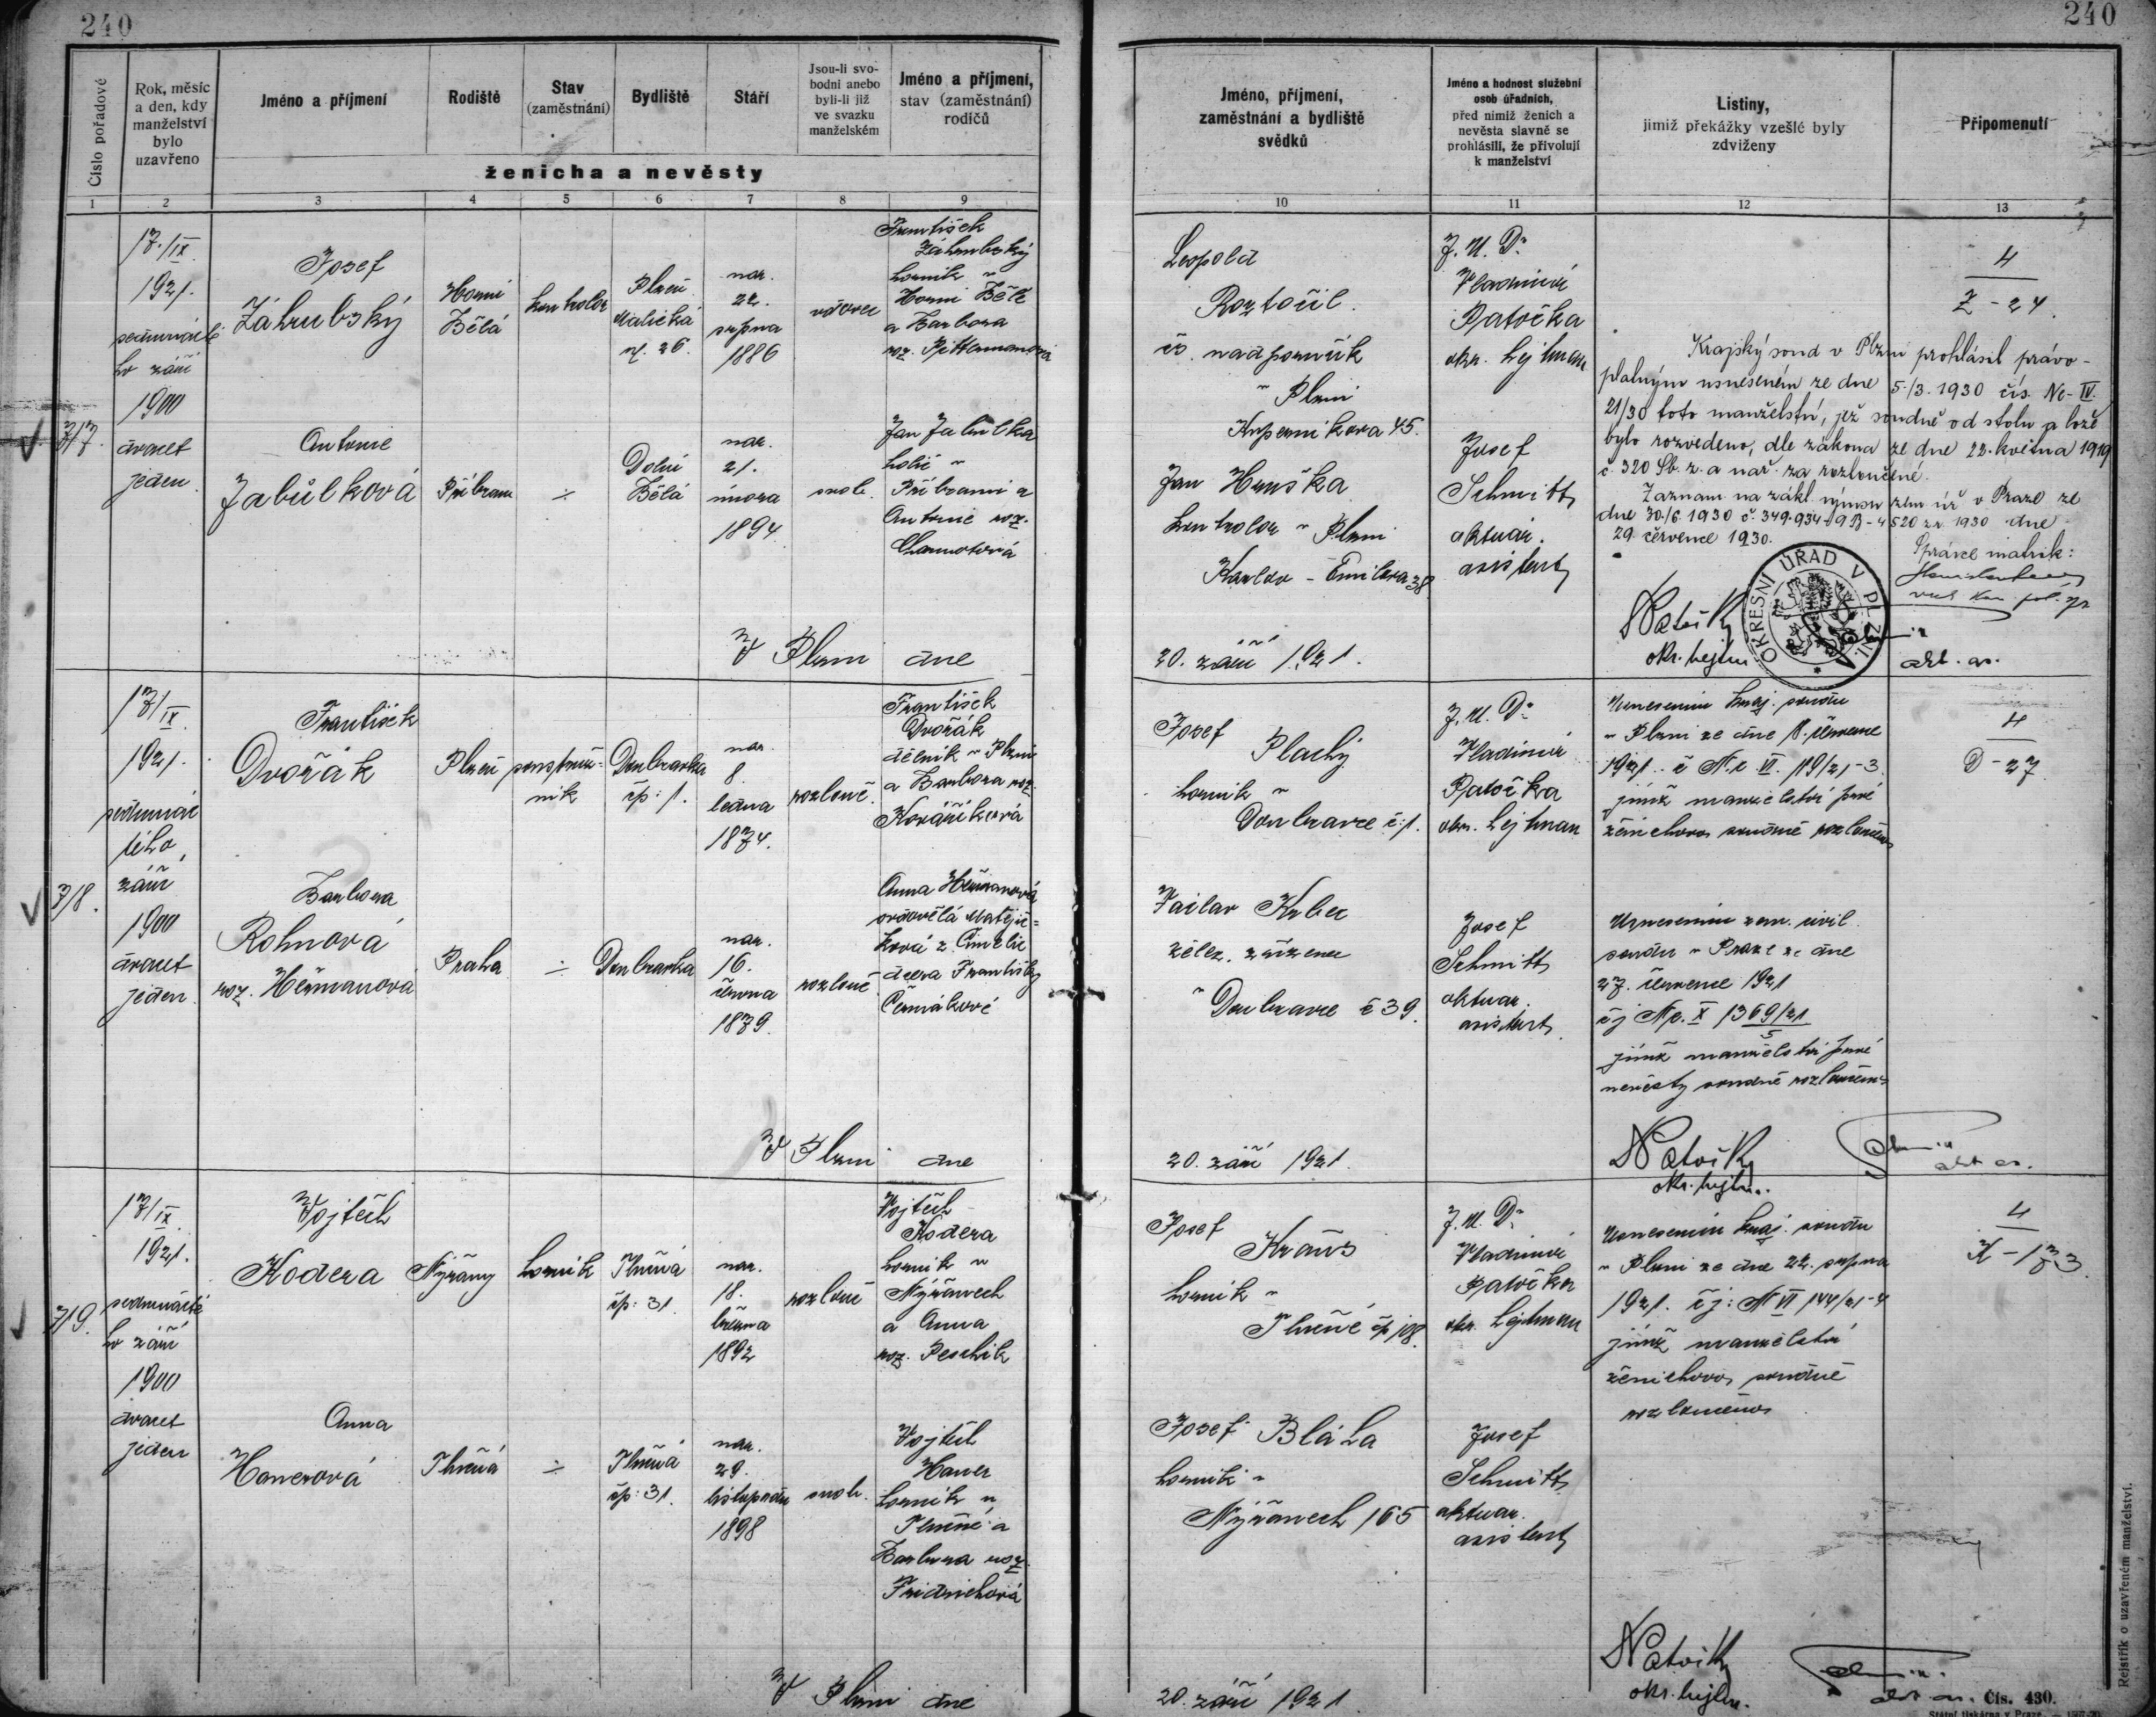 240
240
Číslo pořadové
Rok, měsíc
a den, kdy
manželství
bylo
uzavřeno
Jméno a příjmení
Rodiště
Stav
(zaměstnání)
Bydliště
Stáří
Jsou-li svo-
bodni anebo
byli-li již
ve svazku
manželském
Jméno a příjmení,
stav (zaměstnání)
rodičů
ženicha a nevěsty
Jméno, příjmení,
zaměstnání a bydliště
svědků
Jméno a hodnost služební
osob úřadních,
před nimiž ženich a
nevěsta slavně se
prohlásili, že přivolují
k manželství
Listiny,
jimiž překážky vzešlé byly
zdviženy
Připomenutí
1 2 3 4 5 6 7 8 9 10 11 12 13
717.
17./IX.
1921.
sedmnácté
ho září
1900
dvacet
jeden
Josef
Záhrubský
Horní
Bělá
kontrolor
Plzeň
Malická
28.
nar.
22.
srpna
1886
vdovec
František
Záhrubský
horník v
Horní Bělé
a Barbora
roz.
Antonie
Jabůlková
Příbram
÷
Dolní
Bělá
nar.
21.
února
1894.
svob.
Jan Jabůlka
holič v
Příbrami a
Antonie roz.
Leopold
Roztočil
čs. nadporučík
v Plzni
Koperníkova 45.
Jan Hruška
kontrolor v Plzni
Karlov - Emilova 38
J. U. Dr
Vladimír
Patočka
okr. hejtman
Josef
Schmitt
aktuár.
asistent
4
Z - 24.
Krajský soud v Plzni prohlásil právo-
platným usnesením ze dne 5./3. 1930 čís. Nc-IV.
21/30 toto manželství, jež soudně od stolu a lože
bylo rozvedeno, dle zákona ze dne 22. května 1919
č. 320 Sb. z. a nař. za rozloučené.
Zaznam. na zákl. výnosu zem. úř. v Praze ze
dne 30./6. 1930 č. 349.934-9B-4520 zr. 1930 dne
29. července 1930.
Správce matrik:
OKRESNÍ ÚŘAD V PLZNI.
Patočka
okr. hejtm.
akt. as.
V Plzni dne
20. září 1921.
718.
17/IX.
1921.
sedmnác
tého
září
1900
dvacet
jeden
František
Dvořák
Plzeň
Doubravka
čp: 1.
nar.
8.
ledna
1874.
rozlouč.
František
Dvořák
dělník v Plzni
a Barbora roz.
Kovaříková
Barbora
Rohnová
roz. Heřmanová
Praha
÷
Doubravka
nar.
16.
června
1879.
rozlouč
Anna Heřmanová
ovdovělá Matějíč=
ková z Čimelic
dcera Františky
Čermákové
Josef
Plachý
horník v
Doubravce č: 1.
Václav Krbec
želez. zřízenec
v Doubravce č 39.
J. U. Dr
Vladimír
Patočka
okr. hejtman
Josef
Schmitt
aktuár.
asistent
Usnesením kraj. soudu
v Plzni ze dne 8. července
1921. č Nc VI. 119/21-3
jímž manželství prvé
ženichovo soudně rozloučeno
Usnesením zem. civil
soudu v Praze ze dne
27. července 1921
čj Nc. X 1369/21
5
jímž manželství prvé
nevěsty soudně rozloučeno
4
D - 27
V Plzni dne
20. září 1921.
Patočka
okr. hejtm.
akt as.
719.
17/IX.
1921.
sedmnácté
ho září
1900
dvacet
jeden
Vojtěch
Kodera
Nýřany
horník
Tlučná
čp: 31.
nar.
18.
března
1892
rozlouč
Vojtěch
Kodera
horník v
Nýřanech
a Anna
roz. Peschik
Anna
Hanerová
Tlučná
÷
Tlučná
čp: 31.
nar.
29.
listopadu
1898
svob.
Vojtěch
Haner
horník v
Tlučné a
Barbora roz.
Fridrichová
Josef
Kraus
horník v
Tlučné čp 108.
Josef Bláha
horník v
Nýřanech 165
J. U. Dr
Vladimír
Patočka
okr. hejtman
Josef
Schmitt
aktuár.
asistent
Usnesením kraj. soudu
v Plzni ze dne 22. srpna
1921. čj: Nc VI 144/21-4
jímž manželství
ženichovo soudně
rozloučeno
4
K - 173
V Plzni dne
20. září 1921
Patočka
okr. hejtm.
akt as.
Čís. 430.
Státní tiskárna v Praze.
Rejstřík o uzavřeném manželství.